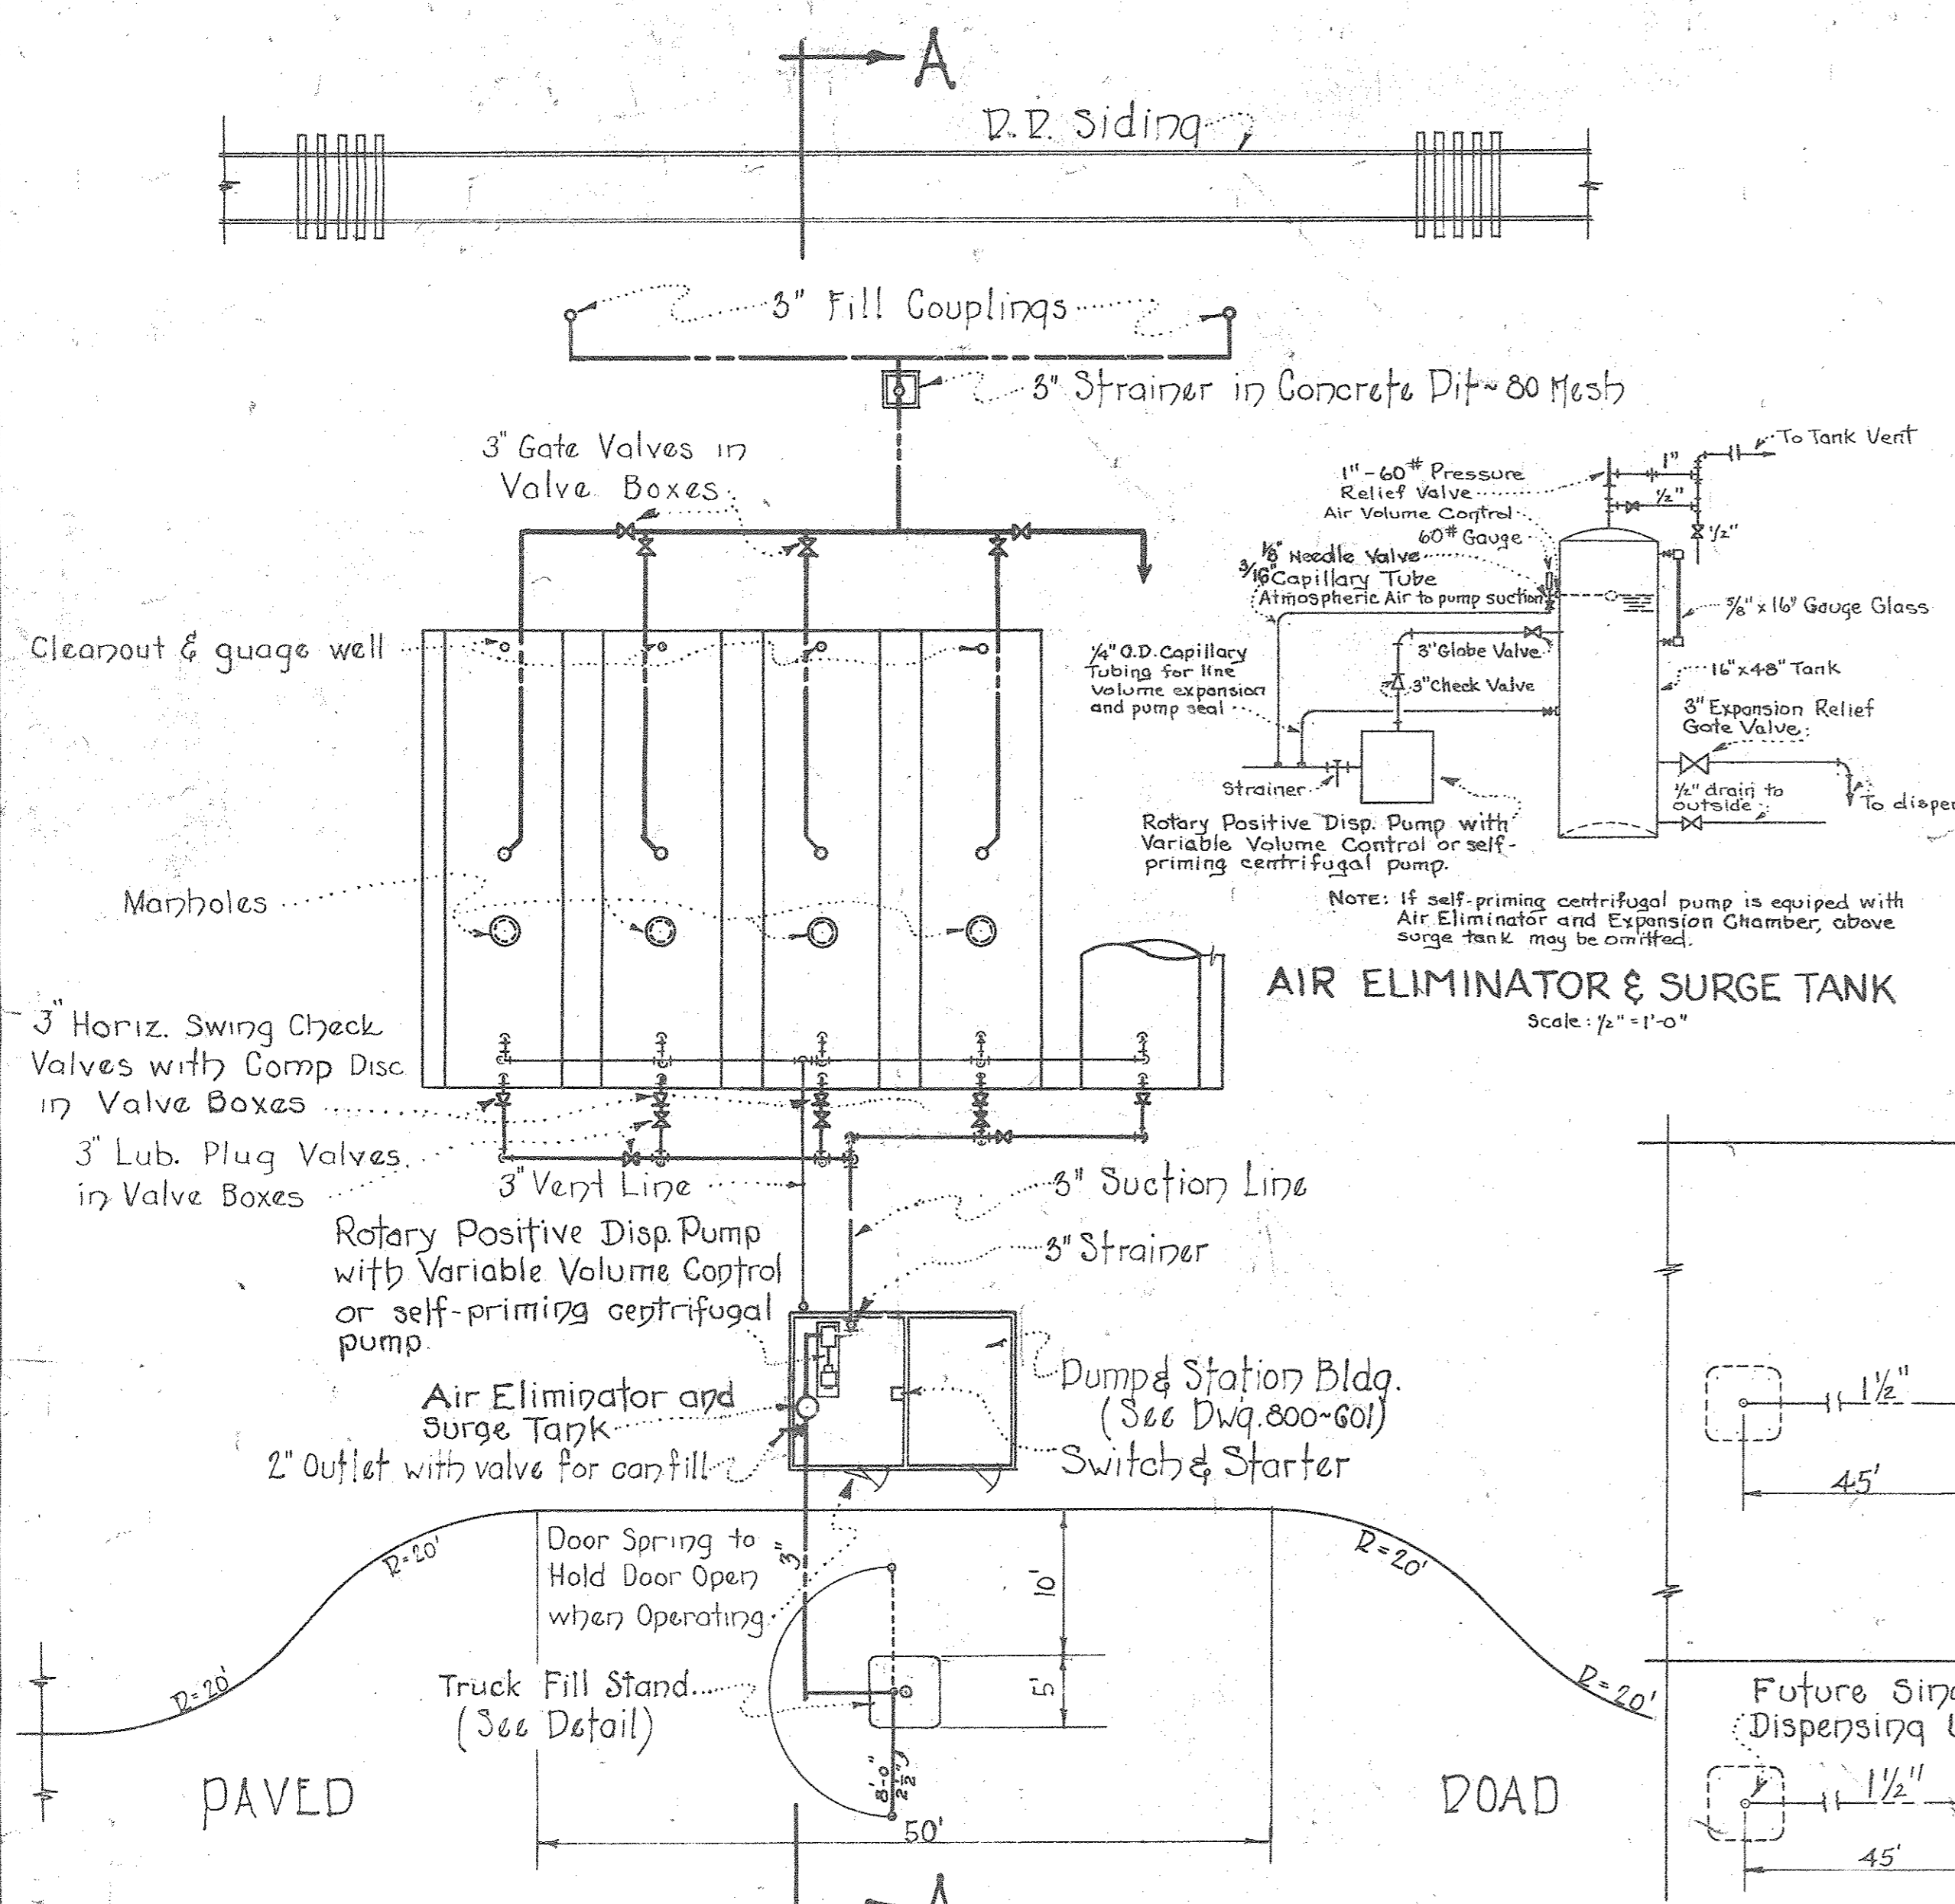 A
R.R. Siding
3" Fill Couplings
3" Strainer in Concrete Pit ~ 80 Mesh
3" Gate Valves in
Valve Boxes
Cleanout & guage well
Manholes
3" Horiz. Swing Check
Valves with Comp Disc
in Valve Boxes
3" Lub. Plug Valves
in Valve Boxes
3" Vent Line
3" Suction Line
3" Strainer
Rotary Positive Disp. Pump
with Variable Volume Control
or self-priming centrifugal
pump.
Air Eliminator and
Surge Tank
2" Outlet with valve for can fill
Pump & Station Bldg.
(See Dwg. 800~601)
Switch & Starter
Door Spring to
Hold Door Open
when Operating
3"
R=20'
R=20'
R=20'
R=20'
10'
5'
Truck Fill Stand
(See Detail)
8'-0"
2½"
50'
PAVED
ROAD
A
To Tank Vent
1"-60# Pressure
Relief Valve
Air Volume Control
60# Gauge
1/8" Needle Valve
3/16" Capillary Tube
Atmospheric Air to pump suction
1"
½"
½"
5/8" x 16" Gauge Glass
¼" O.D. Capillary
Tubing for line
volume expansion
and pump seal
3" Globe Valve
3" Check Valve
16" x 48" Tank
3" Expansion Relief
Gate Valve
½" drain to
outside
To dispen
Strainer
Rotary Positive Disp. Pump with
Variable Volume Control or self-
priming centrifugal pump.
NOTE: If self-priming centrifugal pump is equiped with
Air Eliminator and Expansion Chamber, above
surge tank may be omitted.
AIR ELIMINATOR & SURGE TANK
Scale: ½" = 1'-0"
1½"
45'
Future Sing
Dispensing U
1½"
45'